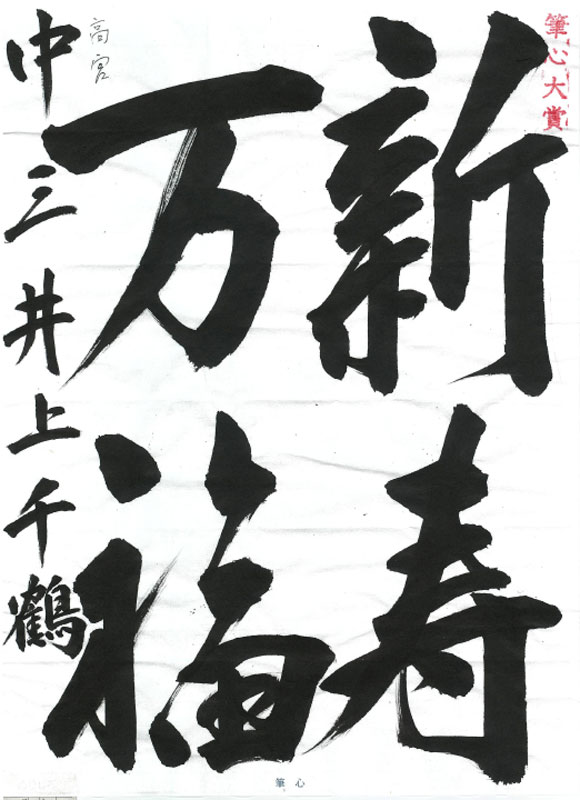 筆心大賞
新寿
万福
高宮
中三井上千鶴
筆心